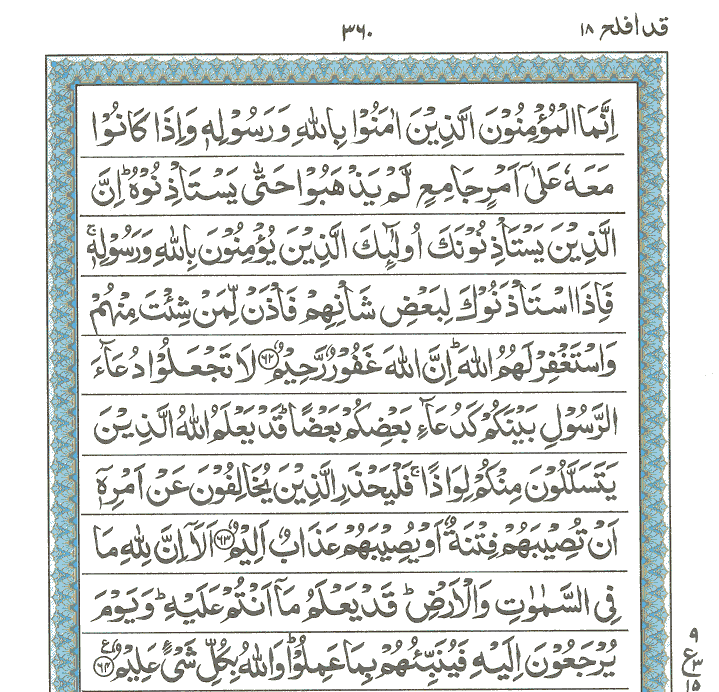 قد افلح ١٨
٣٦٠
اِنَّمَا الۡمُؤۡمِنُوۡنَ الَّذِيۡنَ اٰمَنُوۡا بِاللّٰهِ وَرَسُوۡلِهٖ وَاِذَا كَانُوۡا
مَعَهٗ عَلٰٓى اَمۡرٍ جَامِعٍ لَّمۡ يَذۡهَبُوۡا حَتّٰى يَسۡتَاۡذِنُوۡهُ‌ؕ اِنَّ
الَّذِيۡنَ يَسۡتَاۡذِنُوۡنَكَ اُولٰٓٮِٕكَ الَّذِيۡنَ يُؤۡمِنُوۡنَ بِاللّٰهِ وَرَسُوۡلِهٖ‌ۚ
فَاِذَا اسۡتَاۡذَنُوۡكَ لِبَعۡضِ شَاۡنِهِمۡ فَاۡذَنۡ لِّمَنۡ شِئۡتَ مِنۡهُمۡ
وَاسۡتَغۡفِرۡ لَهُمُ اللّٰهَ‌ؕ اِنَّ اللّٰهَ غَفُوۡرٌ رَّحِيۡمٌ ﴿۶۲﴾ لَا تَجۡعَلُوۡا دُعَآءَ
الرَّسُوۡلِ بَيۡنَكُمۡ كَدُعَآءِ بَعۡضِكُمۡ بَعۡضًا‌ؕ قَدۡ يَعۡلَمُ اللّٰهُ الَّذِيۡنَ
يَتَسَلَّلُوۡنَ مِنۡكُمۡ لِوَاذًا‌ۚ فَلۡيَحۡذَرِ الَّذِيۡنَ يُخَالِفُوۡنَ عَنۡ اَمۡرِهٖۤ
اَنۡ تُصِيۡبَهُمۡ فِتۡنَةٌ اَوۡ يُصِيۡبَهُمۡ عَذَابٌ اَ لِيۡمٌ‏ ﴿۶۳﴾ اَلَاۤ اِنَّ لِلّٰهِ مَا
فِى السَّمٰوٰتِ وَالۡاَرۡضِ‌ؕ قَدۡ يَعۡلَمُ مَاۤ اَنۡتُمۡ عَلَيۡهِؕ وَيَوۡمَ
يُرۡجَعُوۡنَ اِلَيۡهِ فَيُنَبِّئُهُمۡ بِمَا عَمِلُوۡا‌ؕ وَاللّٰهُ بِكُلِّ شَىۡءٍ عَلِيۡمٌ ﴿۶۴﴾
۹
ع
۳
۱۵